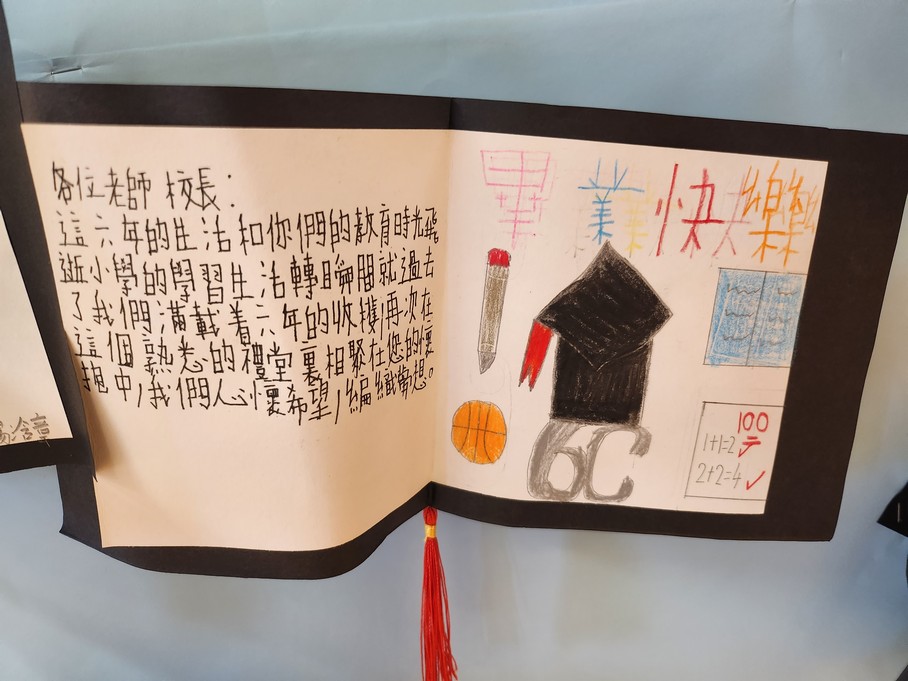 各位老師 校長：
這六年的生活和你們的教育時光飛
逝小學的學習生活轉瞬間就過去
了我們滿載着六年的收穫，再次在
這個熟悉的禮堂裏相聚在您的懷
抱中，我們人心懷希望，編織夢想。
畢業快樂
6C
100
1+1=2
2+2=4